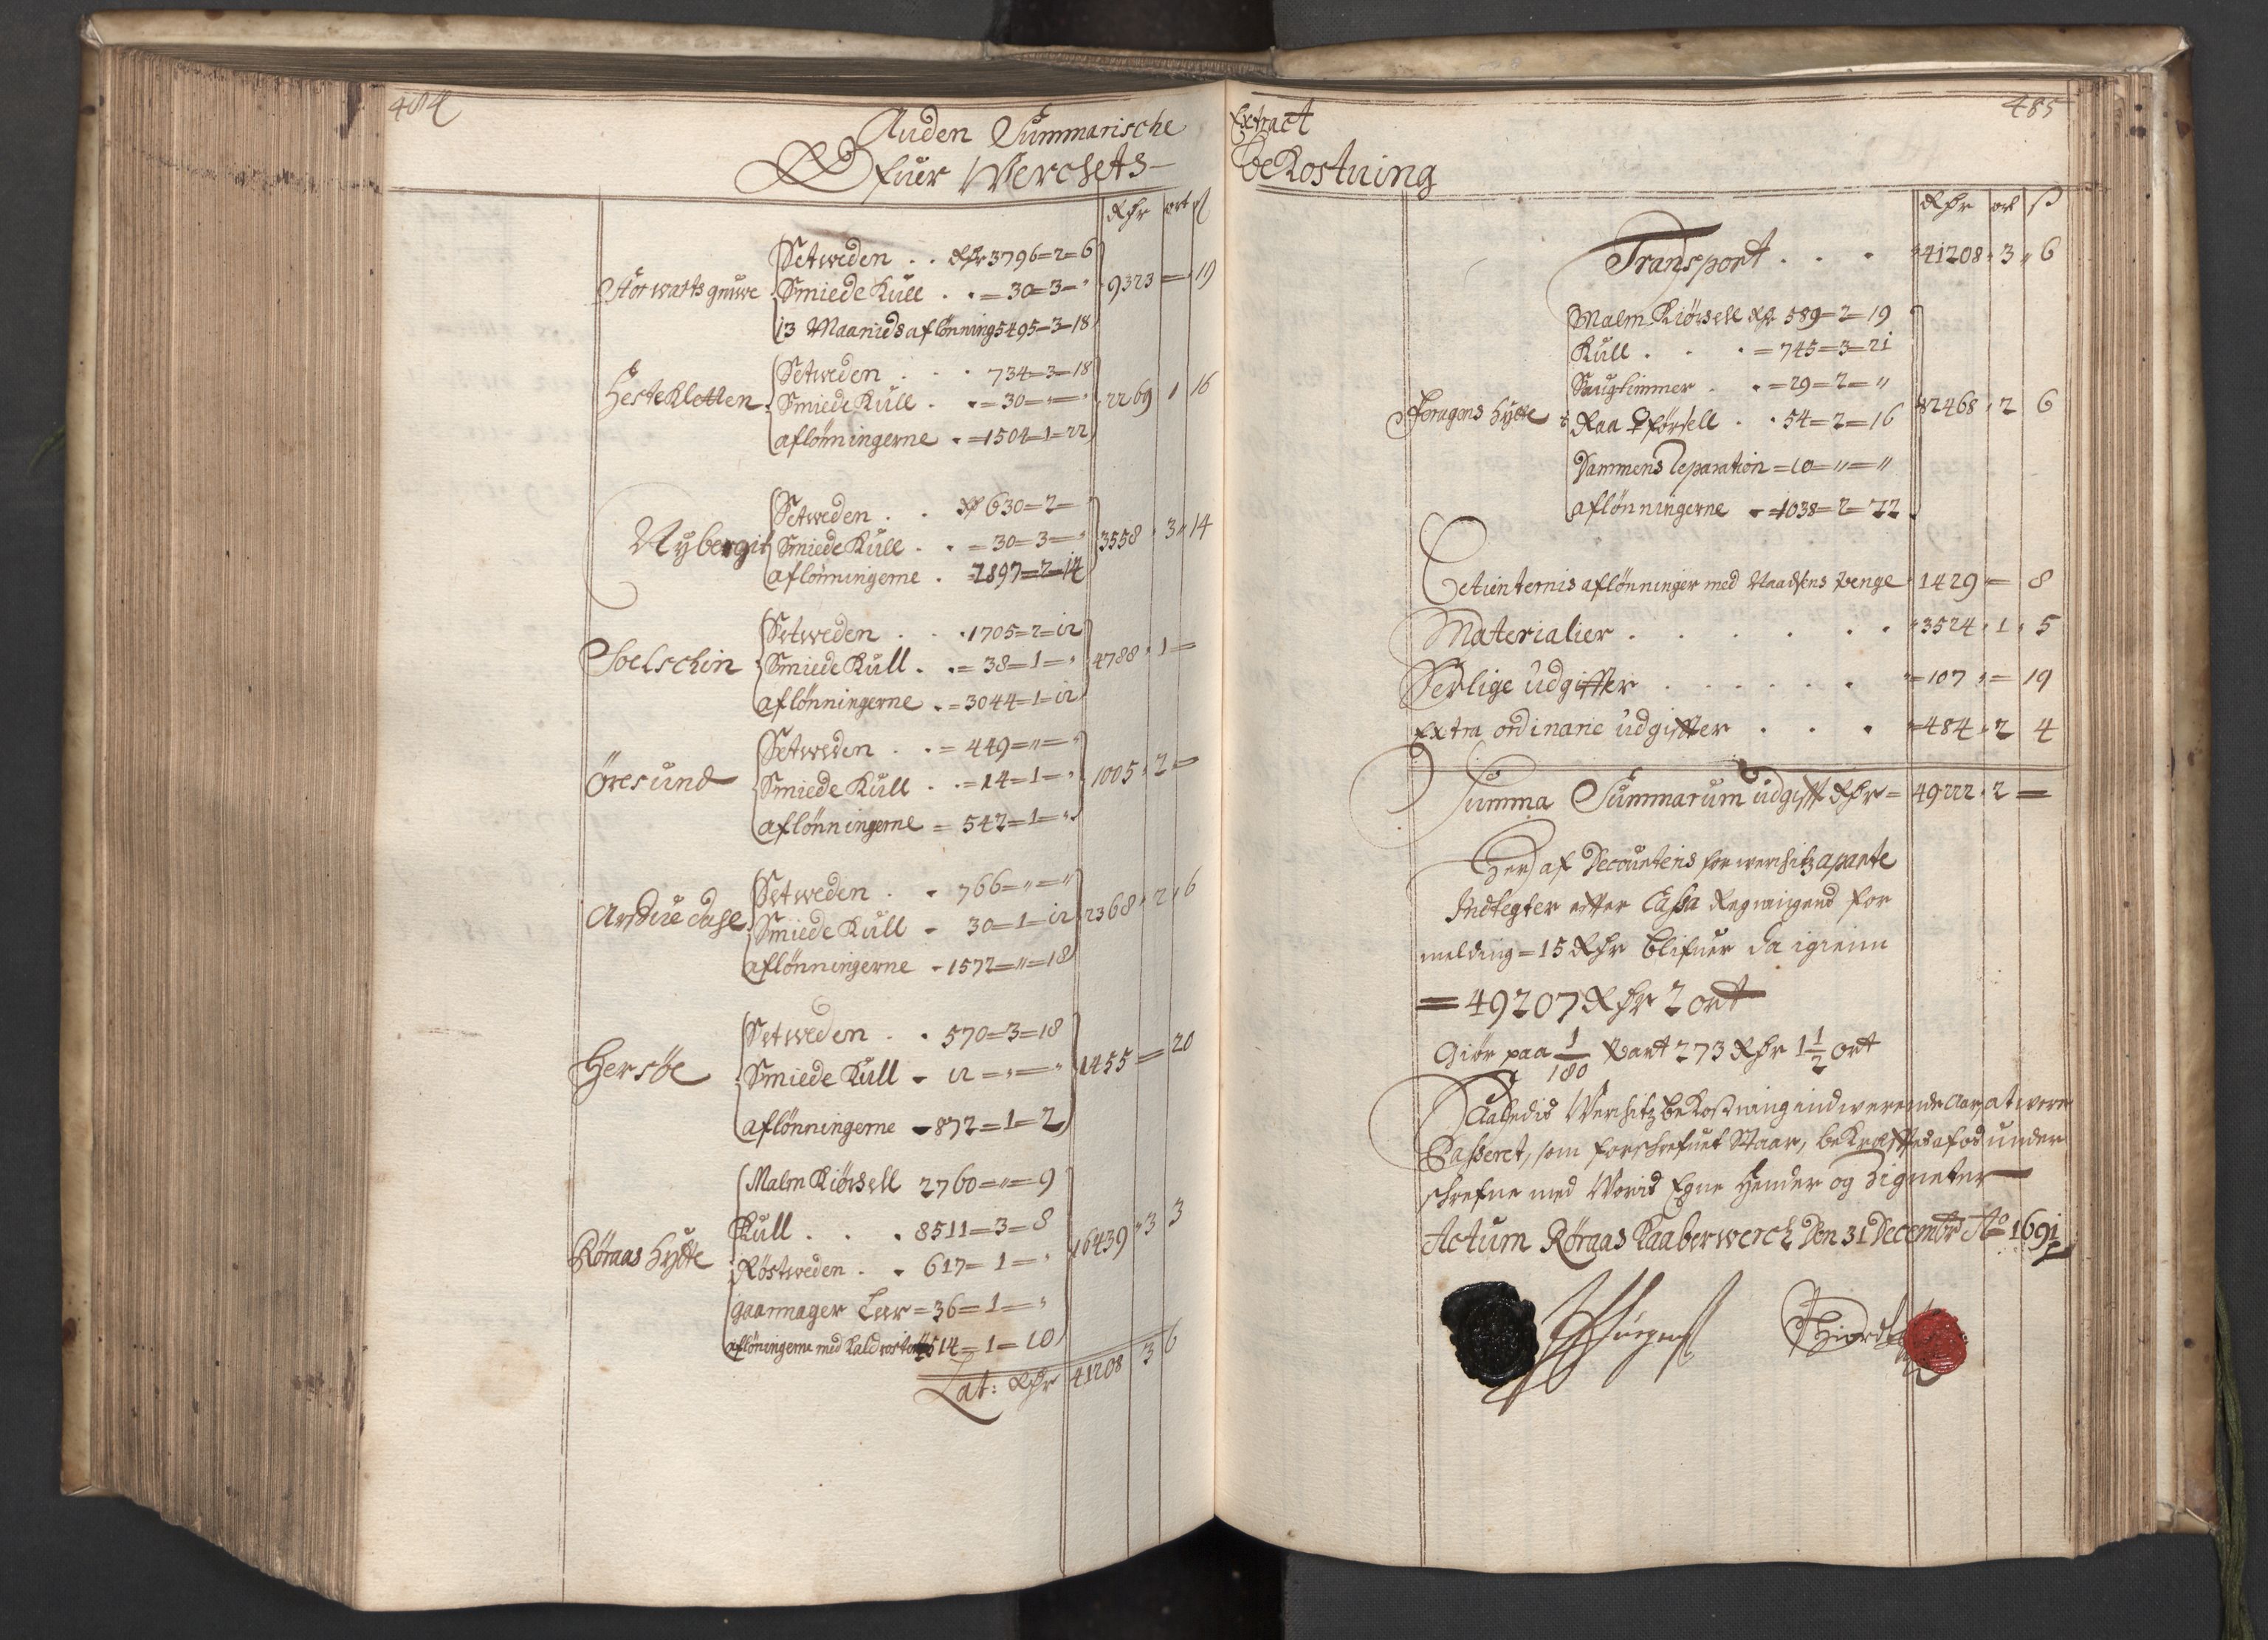 484
Anden Summarische
Ofuer Werckets
Rdr ort ß
Storwarts gruwe
Setweden . . Rdr 3796=2=6
Smiede Kull . . =30=3=„
13 Maanids aflønning 5495=3=18
9323 = 19
HesteKletten
Setweden . . 734=3=18
Smiede Kull . =30=„=„
aflønningerne =1504=1=22
2269 1 16
Nybergit
Setweden . . Rdr 630=2=
Smiede Kull . . =30=3=„
aflønningerne . 2897=2=14
3558 3 14
Soelschin
Setweden . . 1705=2=12
Smiede Kull . =38=1=„
aflønningerne . =3044=1=12
4788 1 =
Öresund
Setweden . . =449=„=„
Smiede Kull . . =14=1=„
aflønningerne =542=1=„
1005 2 =
Arfwedahl
Setweden . . 766=„=„
Smiede Kull = 30=1=12
aflønningerne =1572=„=18
2368 2 6
Hersöe
Setweden . . 570=3=18
Smiede Kull = 12=„=„
aflønningerne =872=1=2
1455 = 20
Röraas Hytte
Malm Kiörsell 2760=„=9
Kull . . . 8511=3=8
Röstweden . . 617=1=„
gaarmager Leer =36=1=„
aflöningerne med Kaldrosterne 4514=1=10
16439 3 3
Lat: Rdr 41208 3 6
Extract
beKostning
485
Rdr ort ß
Transport . . . 41208 3 6
Toragens hytte
Malm Kiörsell Rdr 589=2=19
Kull . . . =745=3=21
Saugtimmer . . =29=2=„
Raa ♀ försell . . 54=2=16
Dammens Reparation =10=„=„
aflønningerne =1038=2=22
2468 2 6
Betienternis aflønninger med Naadsens penge 1429 = 8
Materialier . . . . . . 3524 1 5
Serlige udgiffter . . . . . . 107 = 19
Extra ordinarie udgiffter . . . 484 2 4
Summa Summarum udgifft Rdr = 49222 2 =
Her af Decourteris for werckitz aparte
Indtegter effter Cassa Regningens for
melding =15 Rdr blifuer da igienn
=49207 Rdr 2 ort
Giör paa 1/180 Part 273 Rdr 1 1/2 ort
Saaledis Werckitz beKostning indwerende Aar, at were
Passeret, som forschrefuet Staar, beKræfftes af os under
schrefne med Voris Egne Hender og Zigneter
Actum Röraas Kaaberwerck Den 31 Decembr Ao 1691